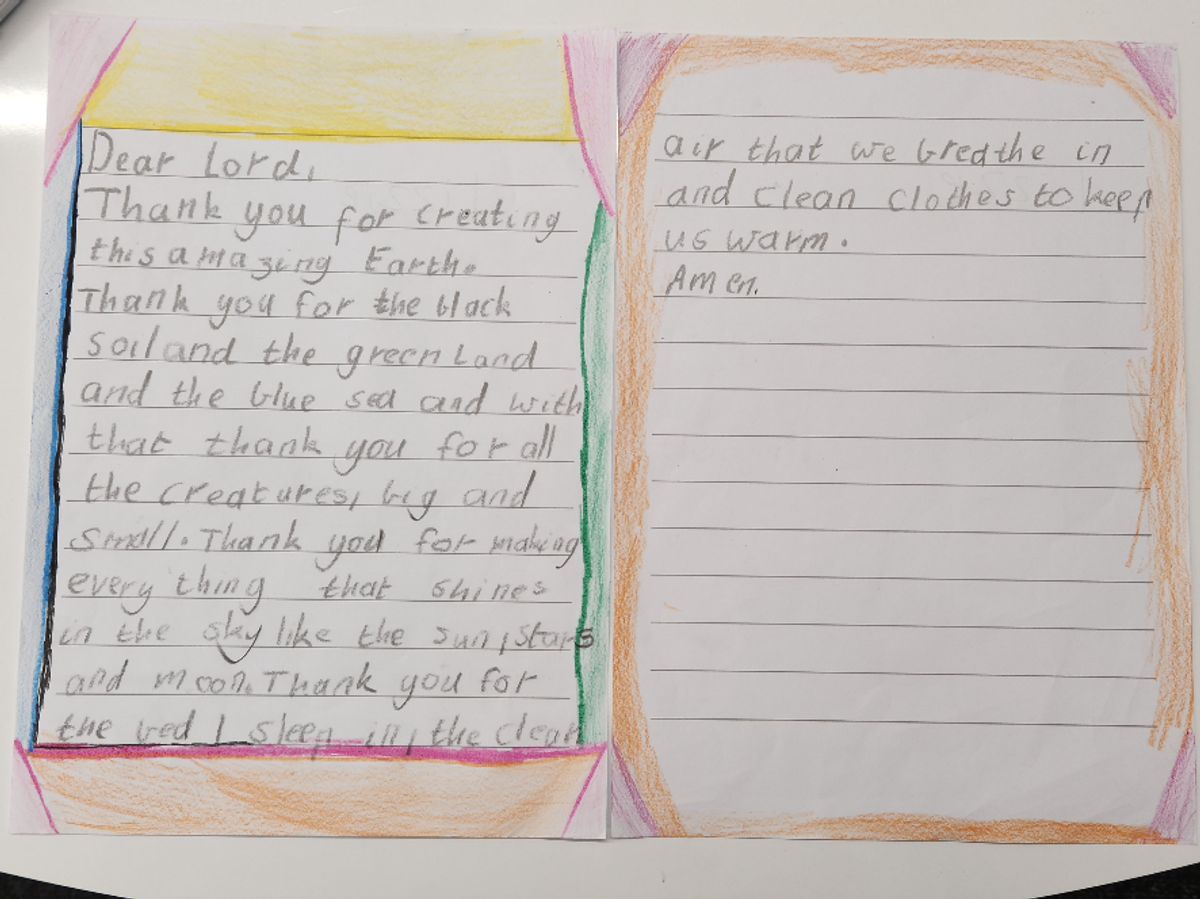 Dear Lord,
Thank you for creating
this amazing Earth.
Thank you for the black
soil and the green Land
and the blue sea and with
that thank you for all
the creatures, big and
small. Thank you for making
every thing that shines
in the sky like the sun, stars
and moon. Thank you for
the bed I sleep in, the clean
air that we breathe in
and clean clothes to keep
us warm.
Amen.